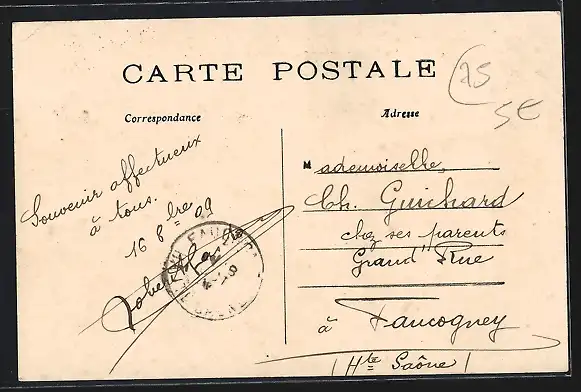 CARTE POSTALE
25
5€
Correspondance
Adresse
Souvenir affectueux
à tous.
16 8bre 09
Mademoiselle,
Ch. Guichard
chez ses parents
Grand'Rue
à Faucogney
(Hte Saône)